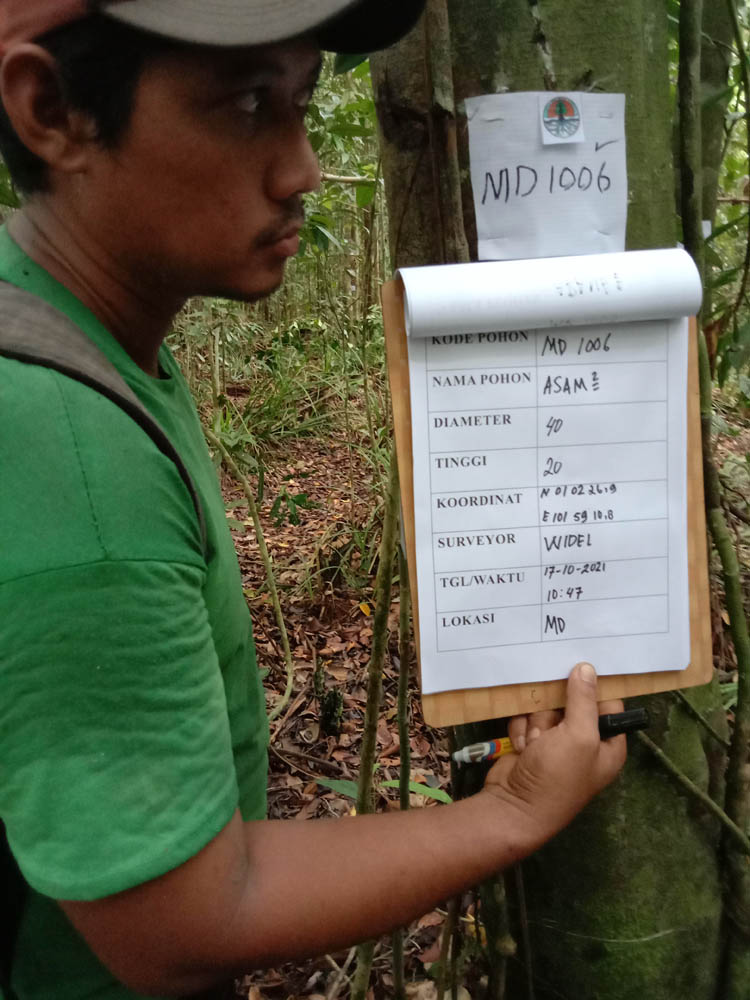 MD 1006
KODE POHON MD 1006
NAMA POHON ASAM²
DIAMETER 40
TINGGI 20
KOORDINAT N 01 02 26,9
E 101 59 10,8
SURVEYOR WIDEL
TGL/WAKTU 17-10-2021
10:47
LOKASI MD